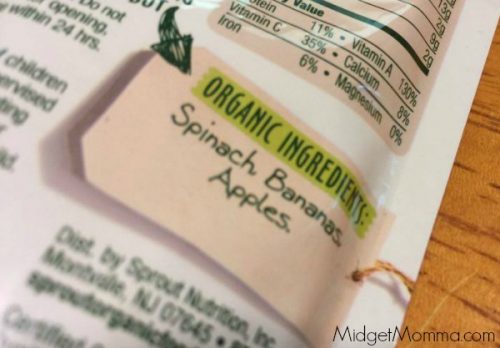 Do not
opening.
within 24 hrs.
of children
ervised
OUT
Value
Protein 11% • Vitamin A 130%
Vitamin C 35% • Calcium 8%
Iron 6% • Magnesium 0%
13g
2g
9g
2g
ORGANIC INGREDIENTS:
Spinach, Bananas,
Apples.
Dist. by Sprout Nutrition, Inc
Montvale, NJ 07645 •
sproutorganic
Certified
MidgetMomma.com